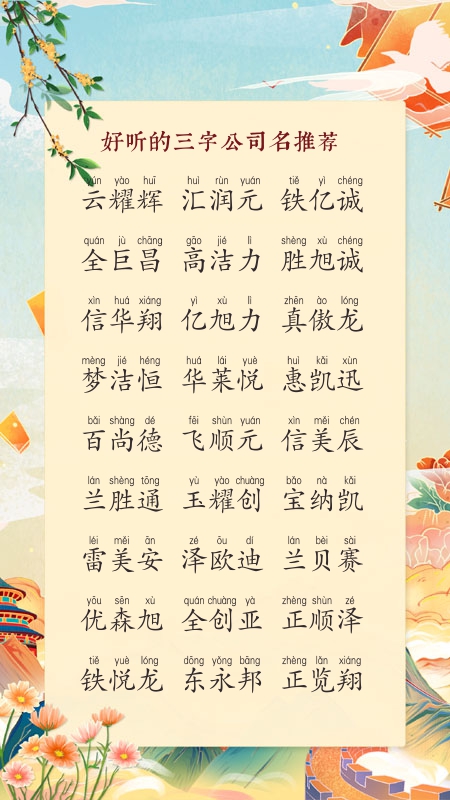 好听的三字公司名推荐
yún yào huī huì rùn yuán tiě yì chéng
云耀辉 汇润元 铁亿诚
quán jù chāng gāo jié lì shèng xù chéng
全巨昌 高洁力 胜旭诚
xìn huá xiáng yì xù lì zhēn ào lóng
信华翔 亿旭力 真傲龙
mèng jié héng huá lái yuè huì kǎi xùn
梦洁恒 华莱悦 惠凯迅
bǎi shàng dé fēi shùn yuán xìn měi chén
百尚德 飞顺元 信美辰
lán shèng tōng yù yào chuàng bǎo nà kǎi
兰胜通 玉耀创 宝纳凯
léi měi ān zé ōu dí lán bèi sài
雷美安 泽欧迪 兰贝赛
yōu sēn xù quán chuàng yà zhèng shùn zé
优森旭 全创亚 正顺泽
tiě yuè lóng dōng yǒng bāng zhèng lǎn xiáng
铁悦龙 东永邦 正览翔